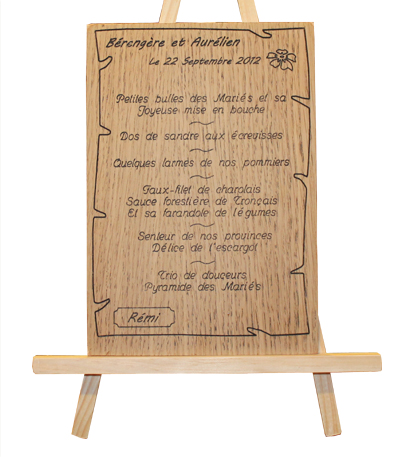 Bérangère et Aurélien
Le 22 Septembre 2012
Petites bulles des Mariés et sa
Joyeuse mise en bouche
Dos de sandre aux écrevisses
Quelques larmes de nos pommiers
Faux-filet de charolais
Sauce forestière de Tronçais
Et sa farandole de légumes
Senteur de nos provinces
Délice de l'escargot
Trio de douceurs
Pyramide des Mariés
Rémi